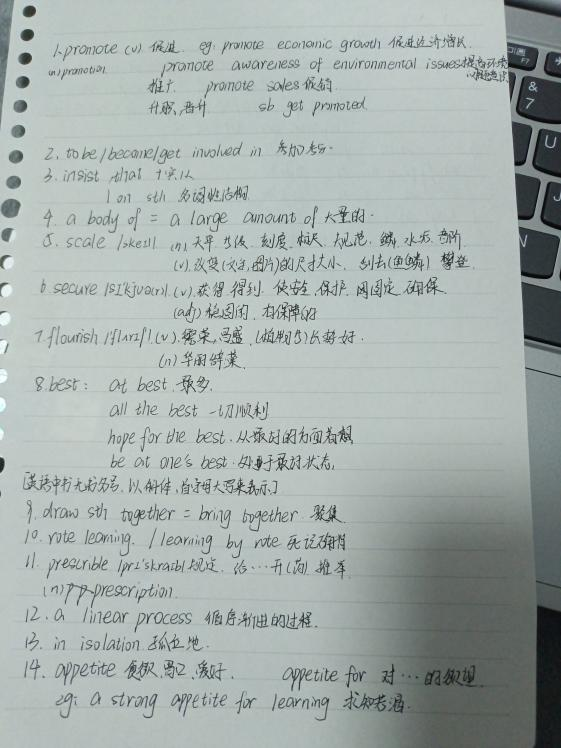 1. promote (v). 促进. eg: promote economic growth 促进经济增长.
(n) promotion promote awareness of environmental issues 提高环境问题意识
推广 promote sales 促销
升职,晋升 sb get promoted
2. to be/become/get involved in 参加参与.
3. insist that 坚认
on sth 名词性结构
4. a body of = a large amount of 大量的.
5. scale /skeɪl/ (n) 天平 等级. 刻度. 标尺. 规范. 鳞. 水垢. 音阶
(v). 改变(文字,图片)的尺寸大小. 刮去(鱼鳞) 攀登
6. secure /sɪ'kjuə(r)/. (v). 获得, 得到. 使安全. 保护. 固定. 确保.
(adj) 稳固的. 有保障的
7. flourish /'flʌrɪʃ/ (v). 繁荣, 昌盛. (植物等)长势好.
(n) 华丽辞藻.
8. best: at best 最多.
all the best 一切顺利
hope for the best. 从最好的方面着想
be at one's best. 处于最好状态.
[英语中书无书名号, 以斜体, 首字母大写来表示]
9. draw sth together = bring together. 聚集.
10. rote learning. / learning by rote 死记硬背
11. prescrible /prɪ'skraɪb/ 规定. 治…开(药). 推荐.
(n) prescription.
12. a linear process 循序渐进的过程.
13. in isolation 孤立地.
14. appetite 食欲, 胃口, 爱好. appetite for 对…的欲望.
eg: a strong appetite for learning 求知若渴.
&
7
F7